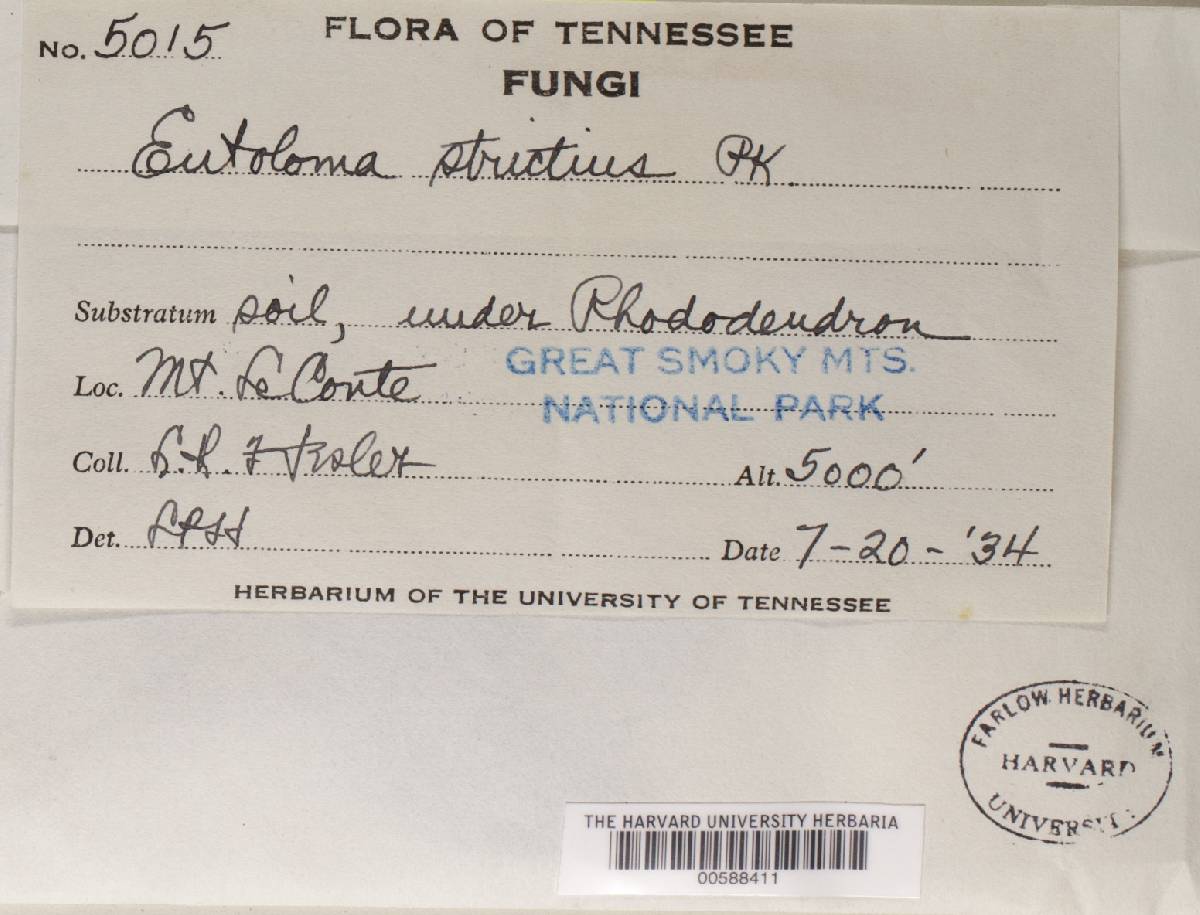 No. 5015
FLORA OF TENNESSEE
FUNGI
Entoloma strictius PK.
Substratum soil, under Rhododendron
Loc. Mt. Le Conte
GREAT SMOKY MTS.
NATIONAL PARK
Coll. L.R. Hesler
Alt. 5000'
Det. LRH
Date 7-20-'34
HERBARIUM OF THE UNIVERSITY OF TENNESSEE
FARLOW HERBARIUM
HARVARD
UNIVERSITY
THE HARVARD UNIVERSITY HERBARIA
00588411